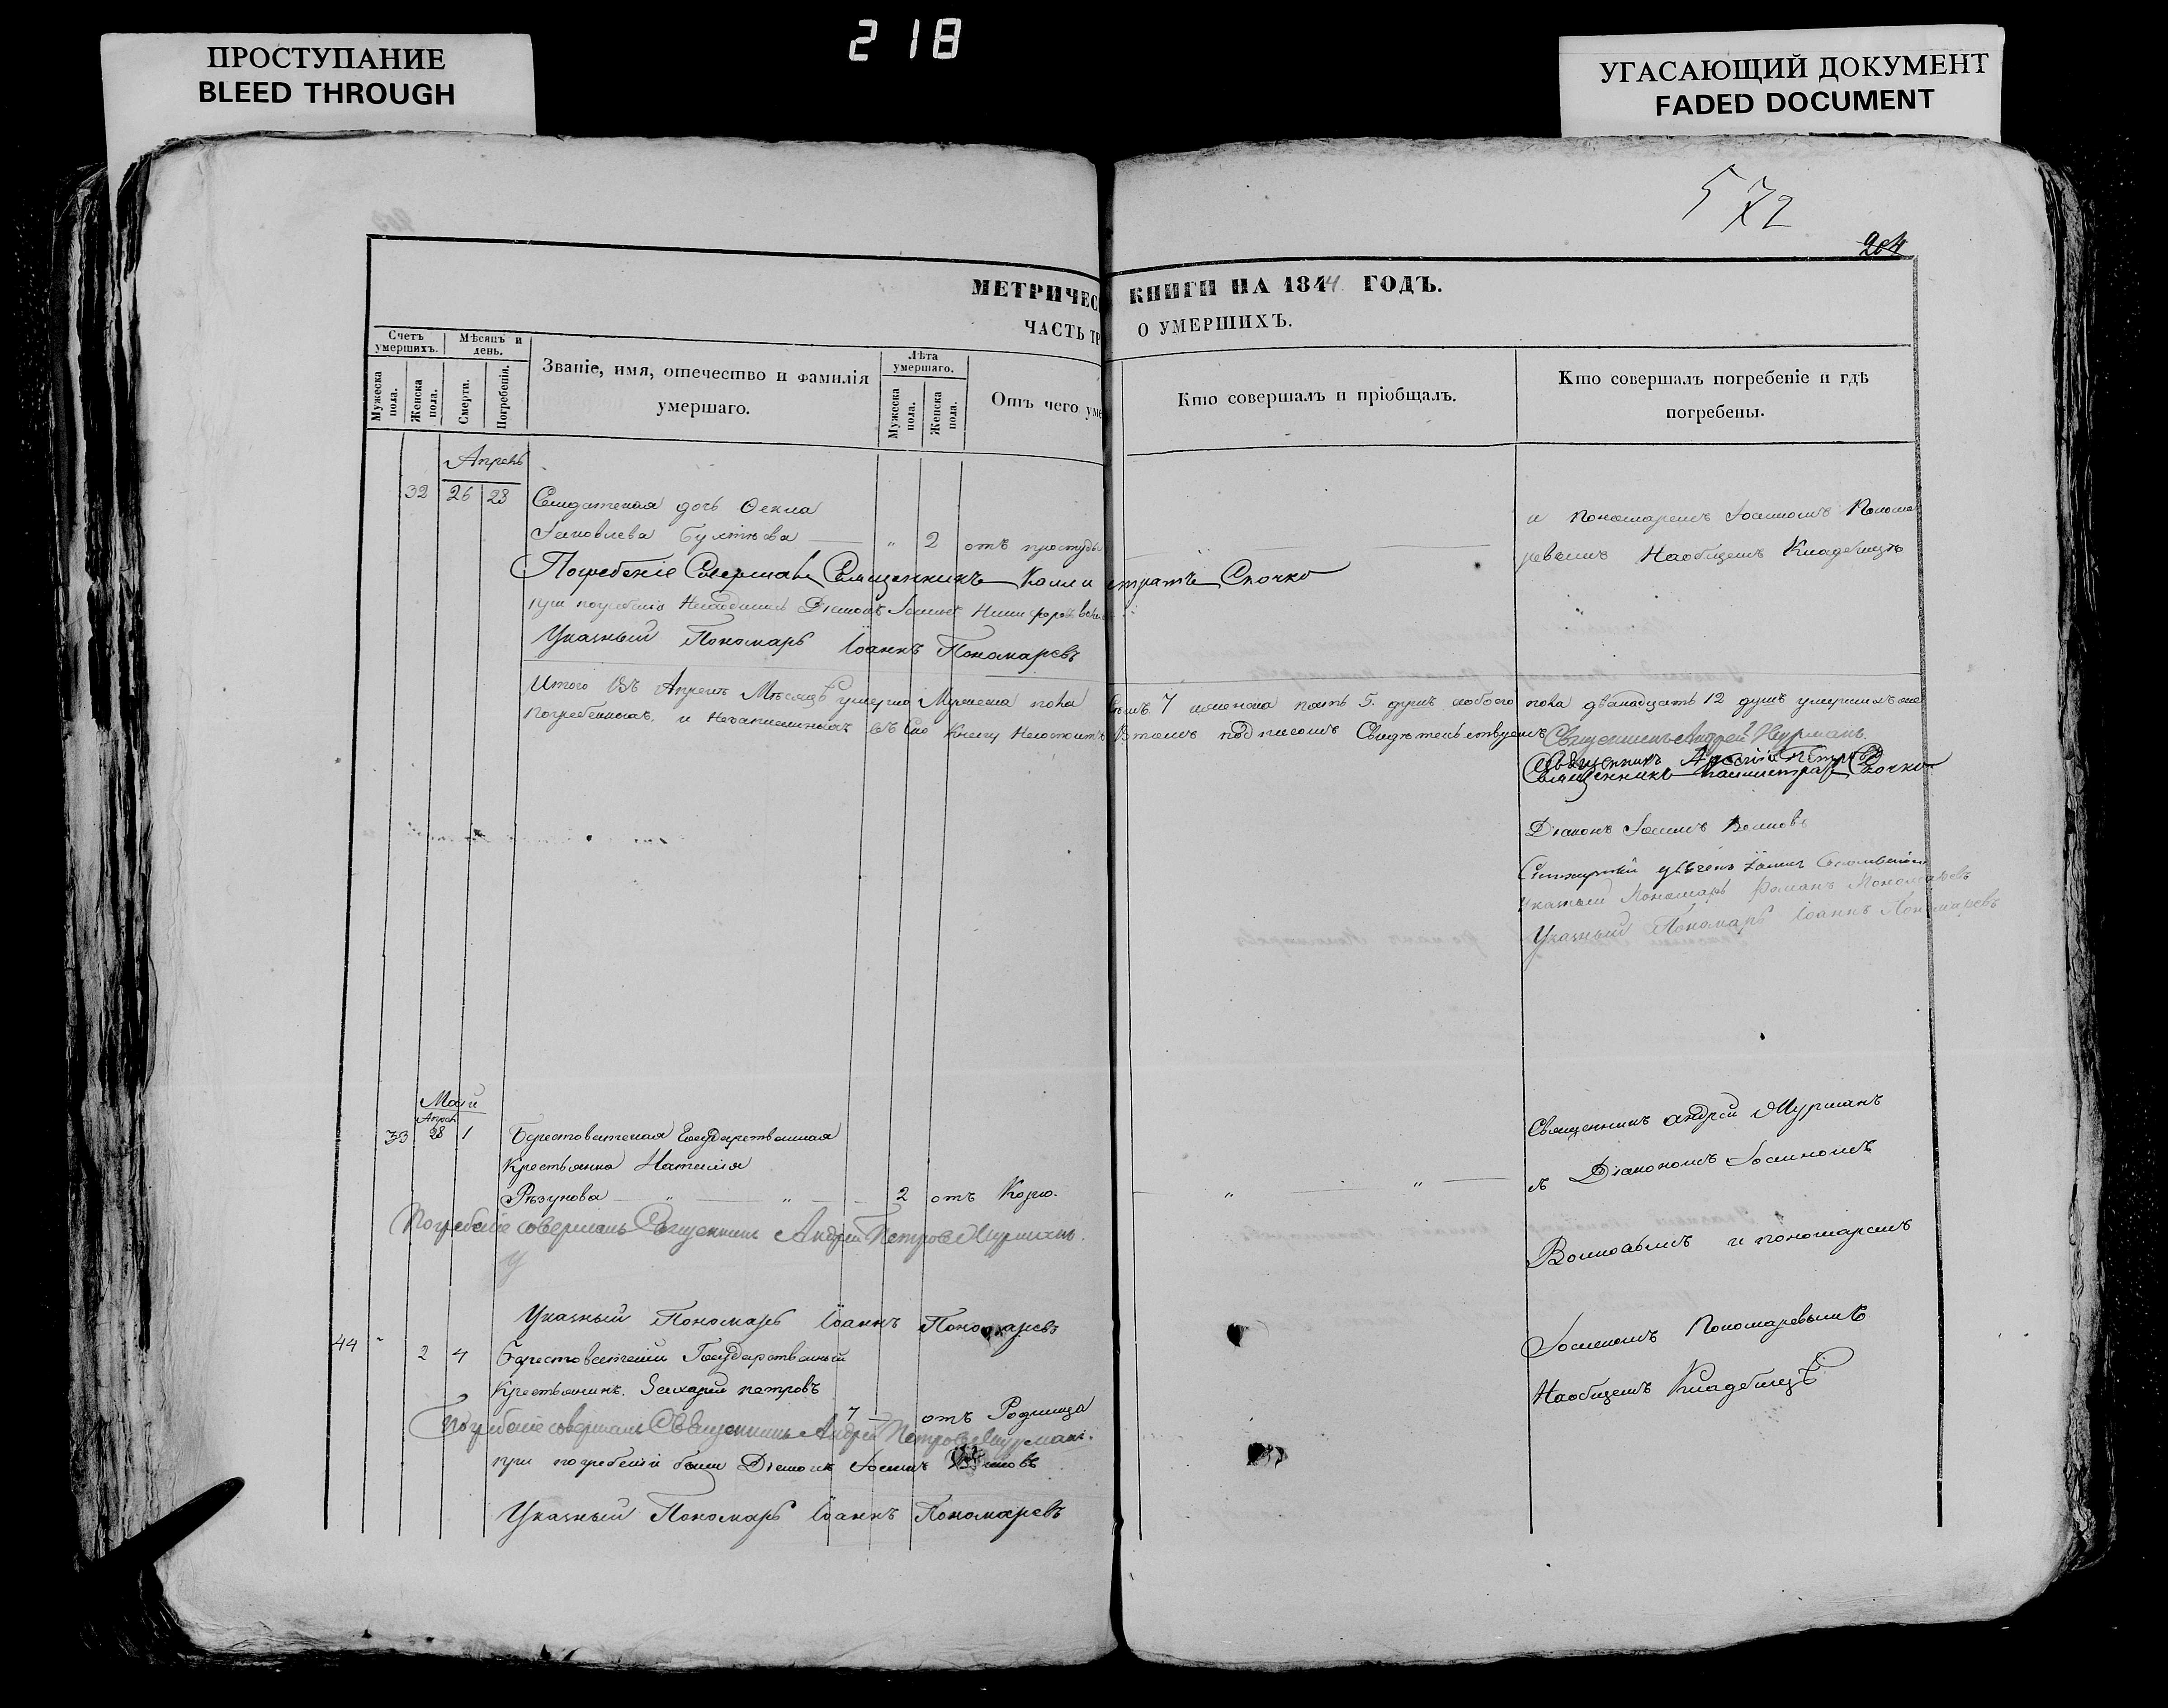 218
ПРОСТУПАНИЕ
BLEED THROUGH
УГАСАЮЩИЙ ДОКУМЕНТ
FADED DOCUMENT
572
204
МЕТРИЧЕС КНИГИ НА 1844 ГОДЪ.
ЧАСТЬ ТР О УМЕРШИХЪ.
Счетъ умершихъ.
Мужеска пола.
Женска пола.
Мѣсяцъ и день.
Смерти.
Погребенія.
Званіе, имя, отечество и фамилія умершаго.
Лѣта умершаго.
Мужеска пола.
Женска пола.
Отъ чего уме
Кто совершалъ и пріобщалъ.
Кто совершалъ погребеніе и гдѣ погребены.
Апрель
32 26 28 Солдатская дочь Ѳекла
Яковлева " 2 отъ простуды
и Пономаремъ Іоанномъ Понома
ревымъ Наобщемъ Кладбищѣ
Погребеніе Совершалъ Священникъ Каллистратъ Сночко
при погребеніи Діаконъ
Указный Пономарь Іоаннъ Пономаревъ
Итого Въ Апрелѣ Мѣсяцѣ умерло Мужеска пола 7 женска полъ 5. душъ обоего пола двенадцать 12 душъ умершихъ
погребенныхъ, и Незаписанныхъ въ Сію Книгу Въ томъ подписомъ Свидѣтельствуемъ
Священникъ Андрей Мурманъ.
Священникъ
Священникъ Каллистратъ Сночко
Діаконъ Іоаннъ Волковъ
Указный Пономарь Романъ Пономаревъ
Указный Пономарь Іоаннъ Пономаревъ
Май
Апрел
33 28 1 Государственная
Крестьянка Наталія
Рѣзунова " " 2 отъ Корю.
" "
Священникъ Андрей Мурманъ
съ Діакономъ Іоанномъ
Волковымъ и пономаремъ
Іоанномъ Пономаревымъ
Наобщемъ Кладбищѣ
Погребеніе совершалъ Священникъ Андрей Петровъ Мурманъ.
Указный Пономарь Іоаннъ Пономаревъ
44 " 2 4 Государственный
Крестьянинъ. Захарій петровъ
7 — отъ Родимца
Погребеніе совершалъ Священникъ Андрей Петровъ Мурманъ.
при погребеніи былъ Діаконъ Іоаннъ Волковъ
Указный Пономарь Іоаннъ Пономаревъ